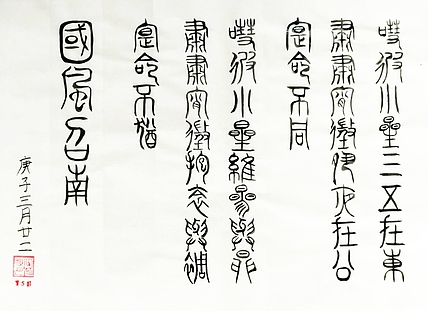 嘒彼小星三五在東
肅肅宵征夙夜在公
寔命不同
嘒彼小星維參與昴
肅肅宵征抱衾與裯
寔命不猶
國風召南
庚子三月廿二